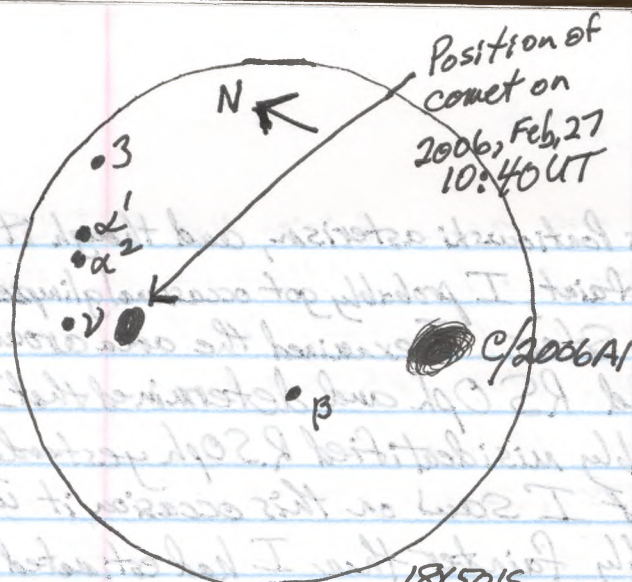 Position of
comet on
2006, Feb, 27
10:40 UT
N
3
α¹
α²
ν
C/2006A1
β
18X50IS